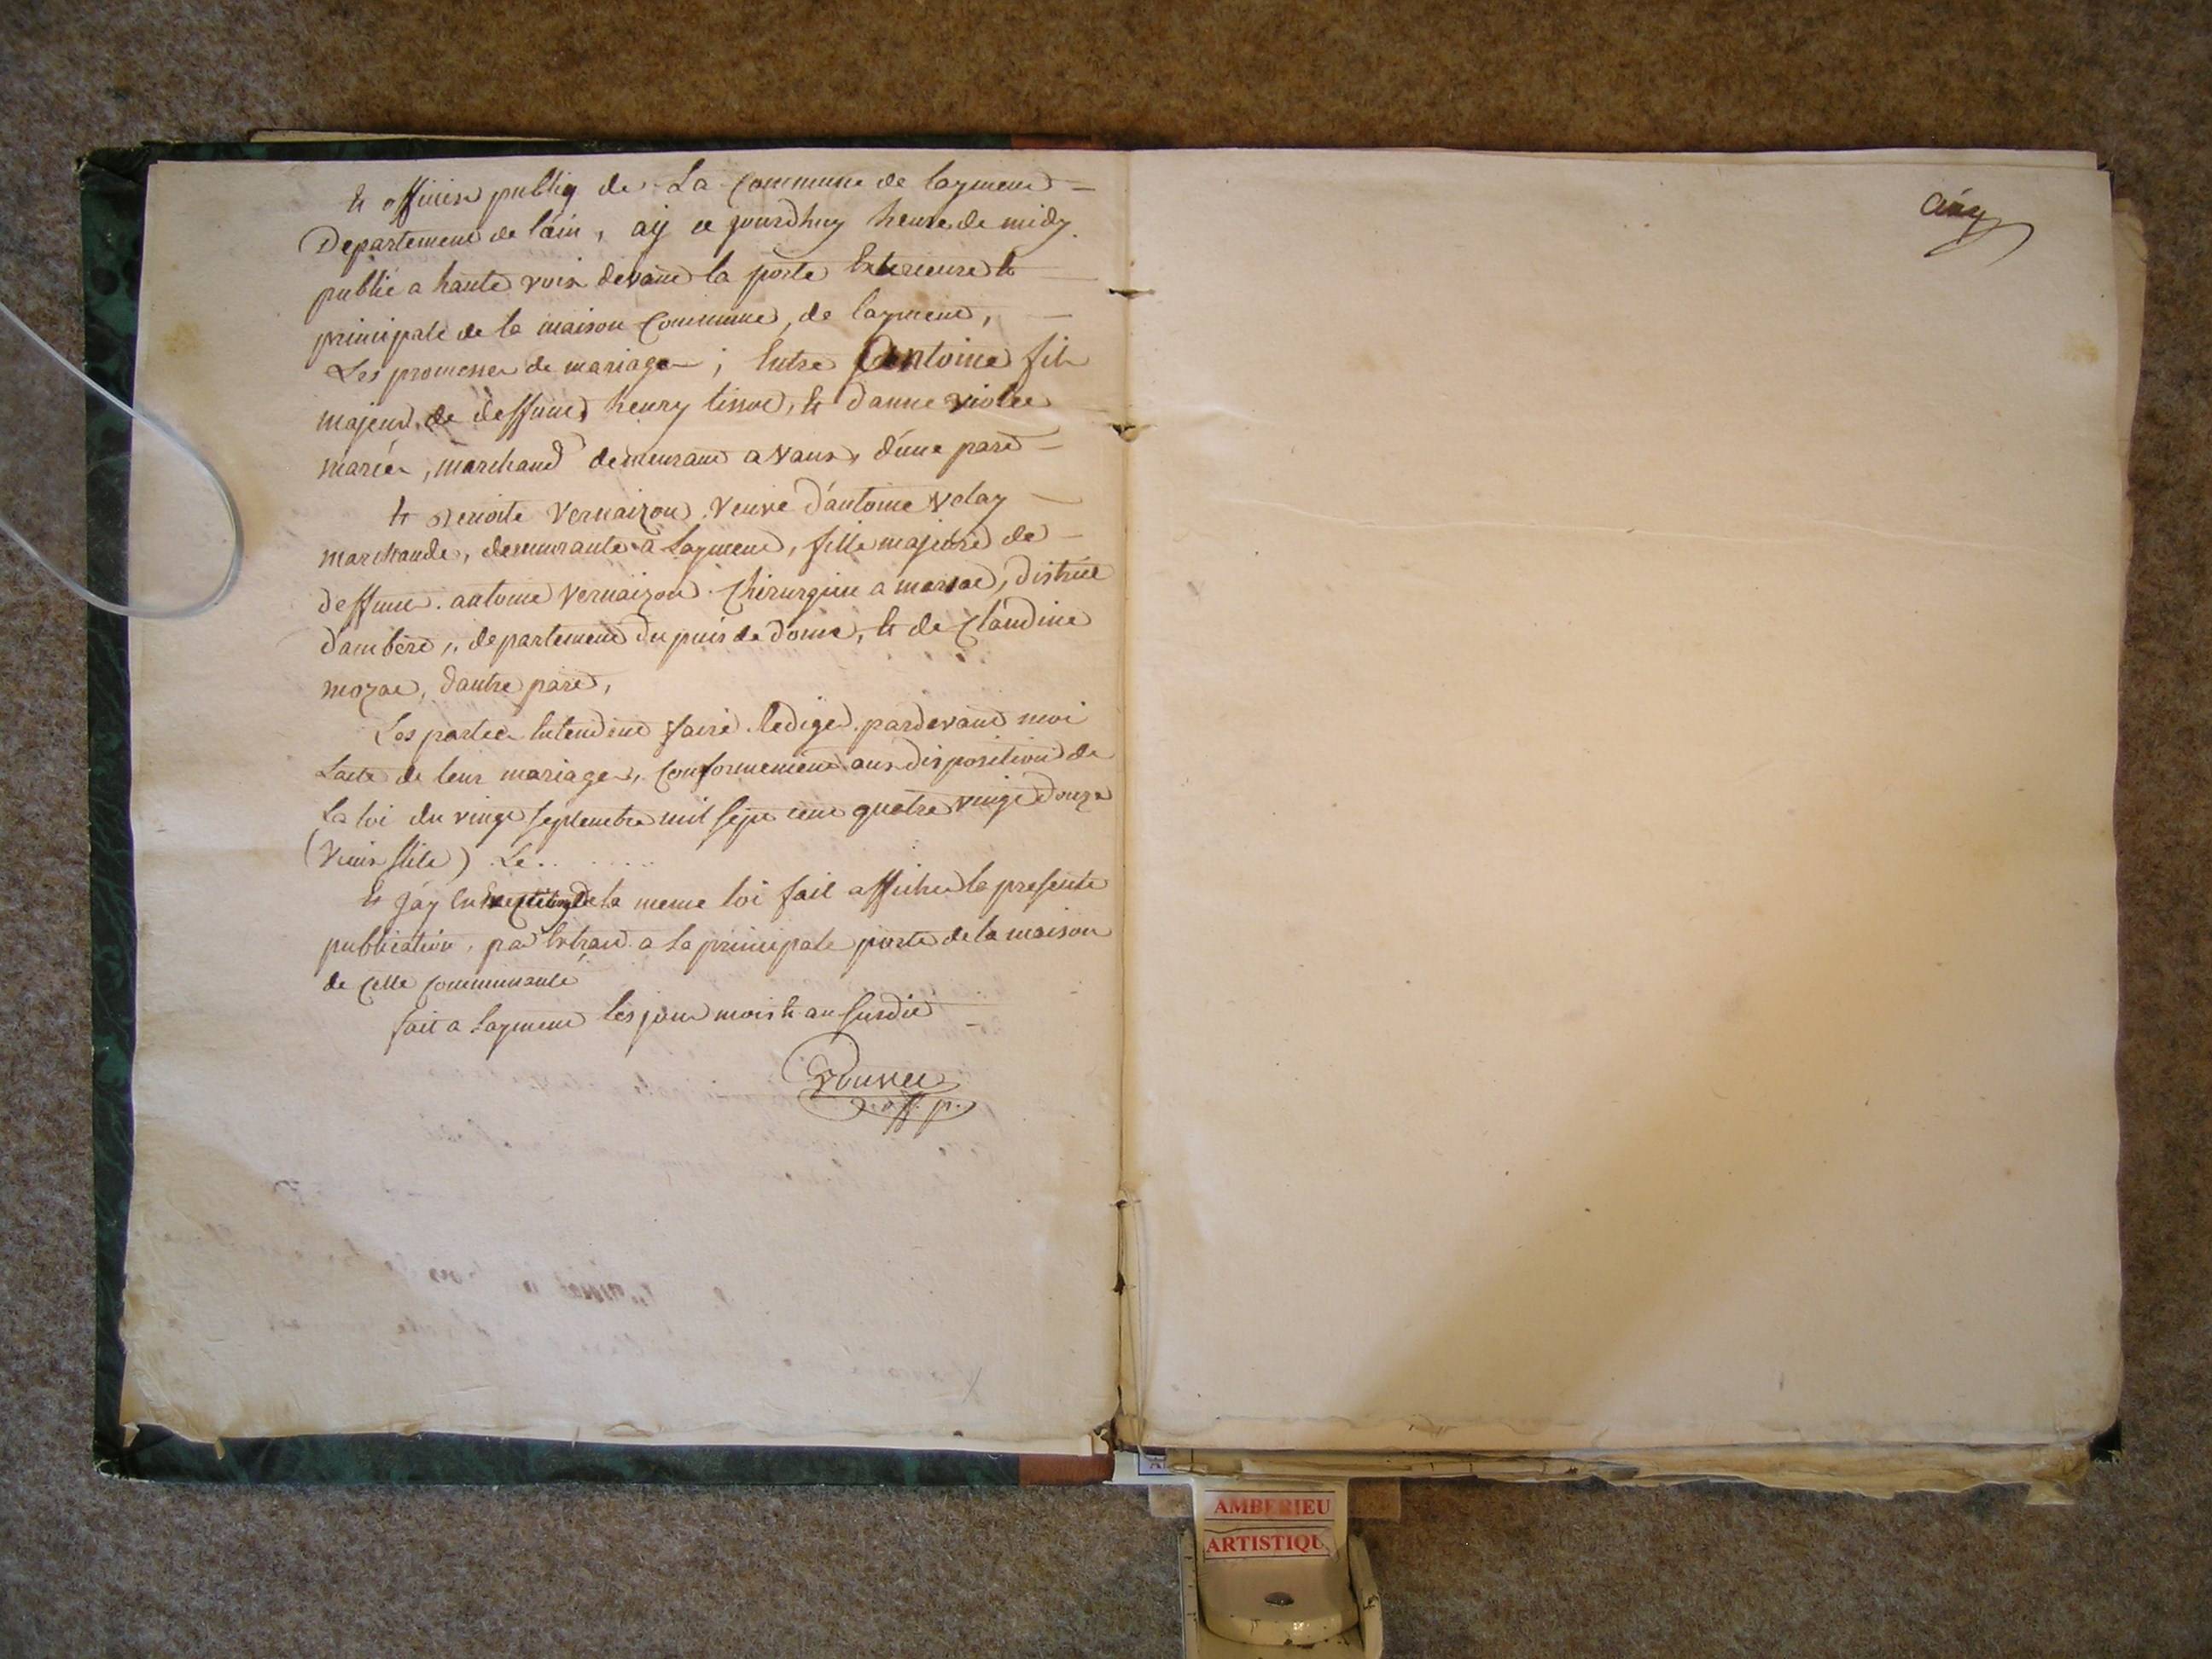 et officier publiq de La Commune de lagnieu
Departement de láin, aÿ ce jourdhuy heure de midy
publié a haute voix devant la porte Exterieure et
principale de la maison Commune, de lagnieu,
Les promesses de mariage ; Entre Antoine fils
majeur de deffunt henry tissot, et danne violet
mariés, marchand demeurant a vaux, d'une part
et Benoite Vernaizon veuve d'antoine velay
marchande, demeurante a Lagnieu, fille majeure de
deffunt antoine Vernaizon Chirurgien a marsac, district
d'ambert, departement du puis de dome, et de Claudine
mozac, dautre part,
Les parties Entendent faire rediger pardevant moi
Lacte de leur mariage, Conformement aux disposition de
La loi du vingt septembre mil sept cent quatre vingt douze
(vieux stile) Le . . . . . .
et Jáy En Execution de la meme loi fait afficher la presente
publication, par Extrait a la principale porte de la maison
de cette Communauté
fait a Lagnieu les jour mois et an susdit
off. p.
cinq
AMBERIEU
ARTISTIQU